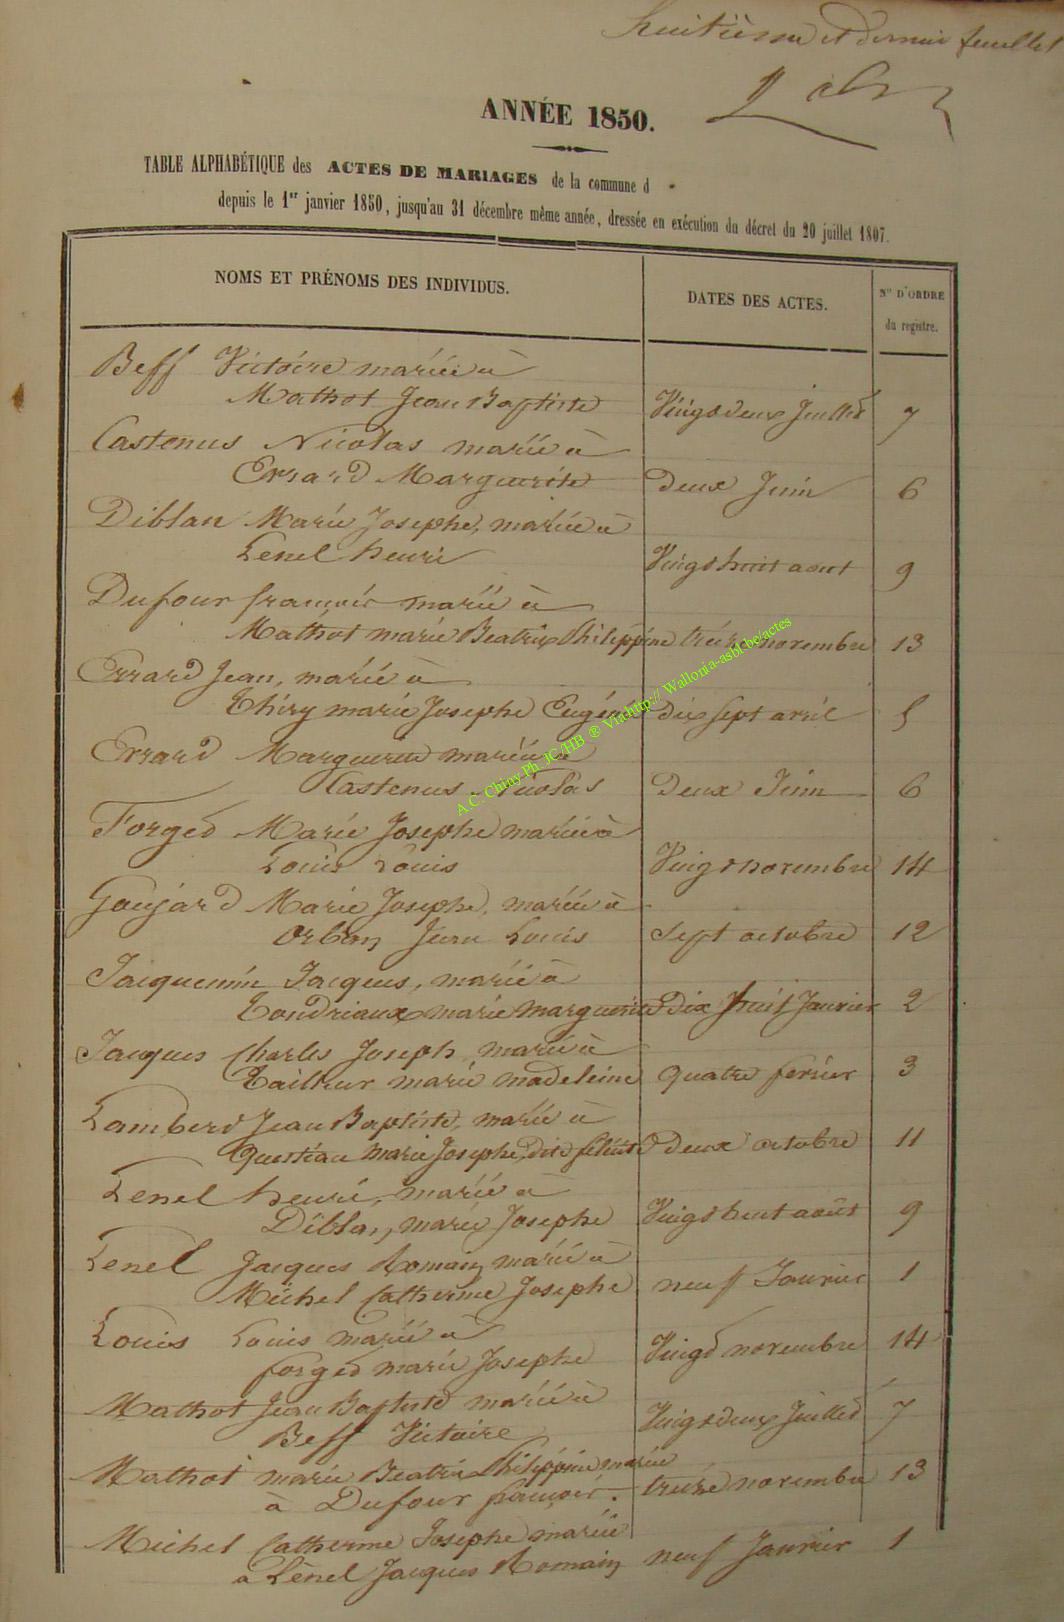 huitième et dernier feuillet
ANNÉE 1850.
TABLE ALPHABÉTIQUE des ACTES DE MARIAGES de la commune d
depuis le 1er janvier 1850, jusqu'au 31 décembre même année, dressée en exécution du décret du 20 juillet 1807.
NOMS ET PRÉNOMS DES INDIVIDUS. DATES DES ACTES. Nos D'ORDRE
du registre.
Beff Victoire mariée à
Mathot Jean Baptiste Vingt deux Juillet 7
Castenus Nicolas marié à
Errard Marguerite Deux Juin 6
Diblan Marie Josephe, mariée à
Lenel henri Vingt huit aout 9
Dufour françois marié à
Mathot marie Beatrix Philippine treize novembre 13
Errard Jean, marié à
Thiry marie Josephe Eugénie Dix sept avril 5
Errard Marguerite mariée à
Castenus Nicolas Deux Juin 6
Forget Marie Josephe mariée à
Louis Louis Vingt novembre 14
Goujard Marie Josephe, mariée à
Orban Jean Louis Sept octobre 12
Jacquemin Jacques, marié à
Tondriaux marie marguerite Dix huit Janvier 2
Jacques Charles Joseph marié à
Tailleur marie madeleine quatre fevrier 3
Lambert Jean Baptiste, marié à
Questiau Marie Josephe, dite félicité deux octobre 11
Lenel henri, marié à
Diblan, marie Josephe Vingt huit août 9
Lenel Jacques Romain marié à
Michel Catherine Josephe neuf Janvier 1
Louis Louis marié à
forget marie Josephe Vingt novembre 14
Mathot Jean Baptiste marié à
Beff Victoire Vingt deux Juillet 7
Mathot marie Beatrix Philippine mariée
à Dufour françois. treize novembre 13
Michel Catherine Josephe mariée
a Lenel Jacques Romain neuf Janvier 1
A.C. Chiny Ph. JC/HB ® Via http:// Wallonia-asbl-be/actes